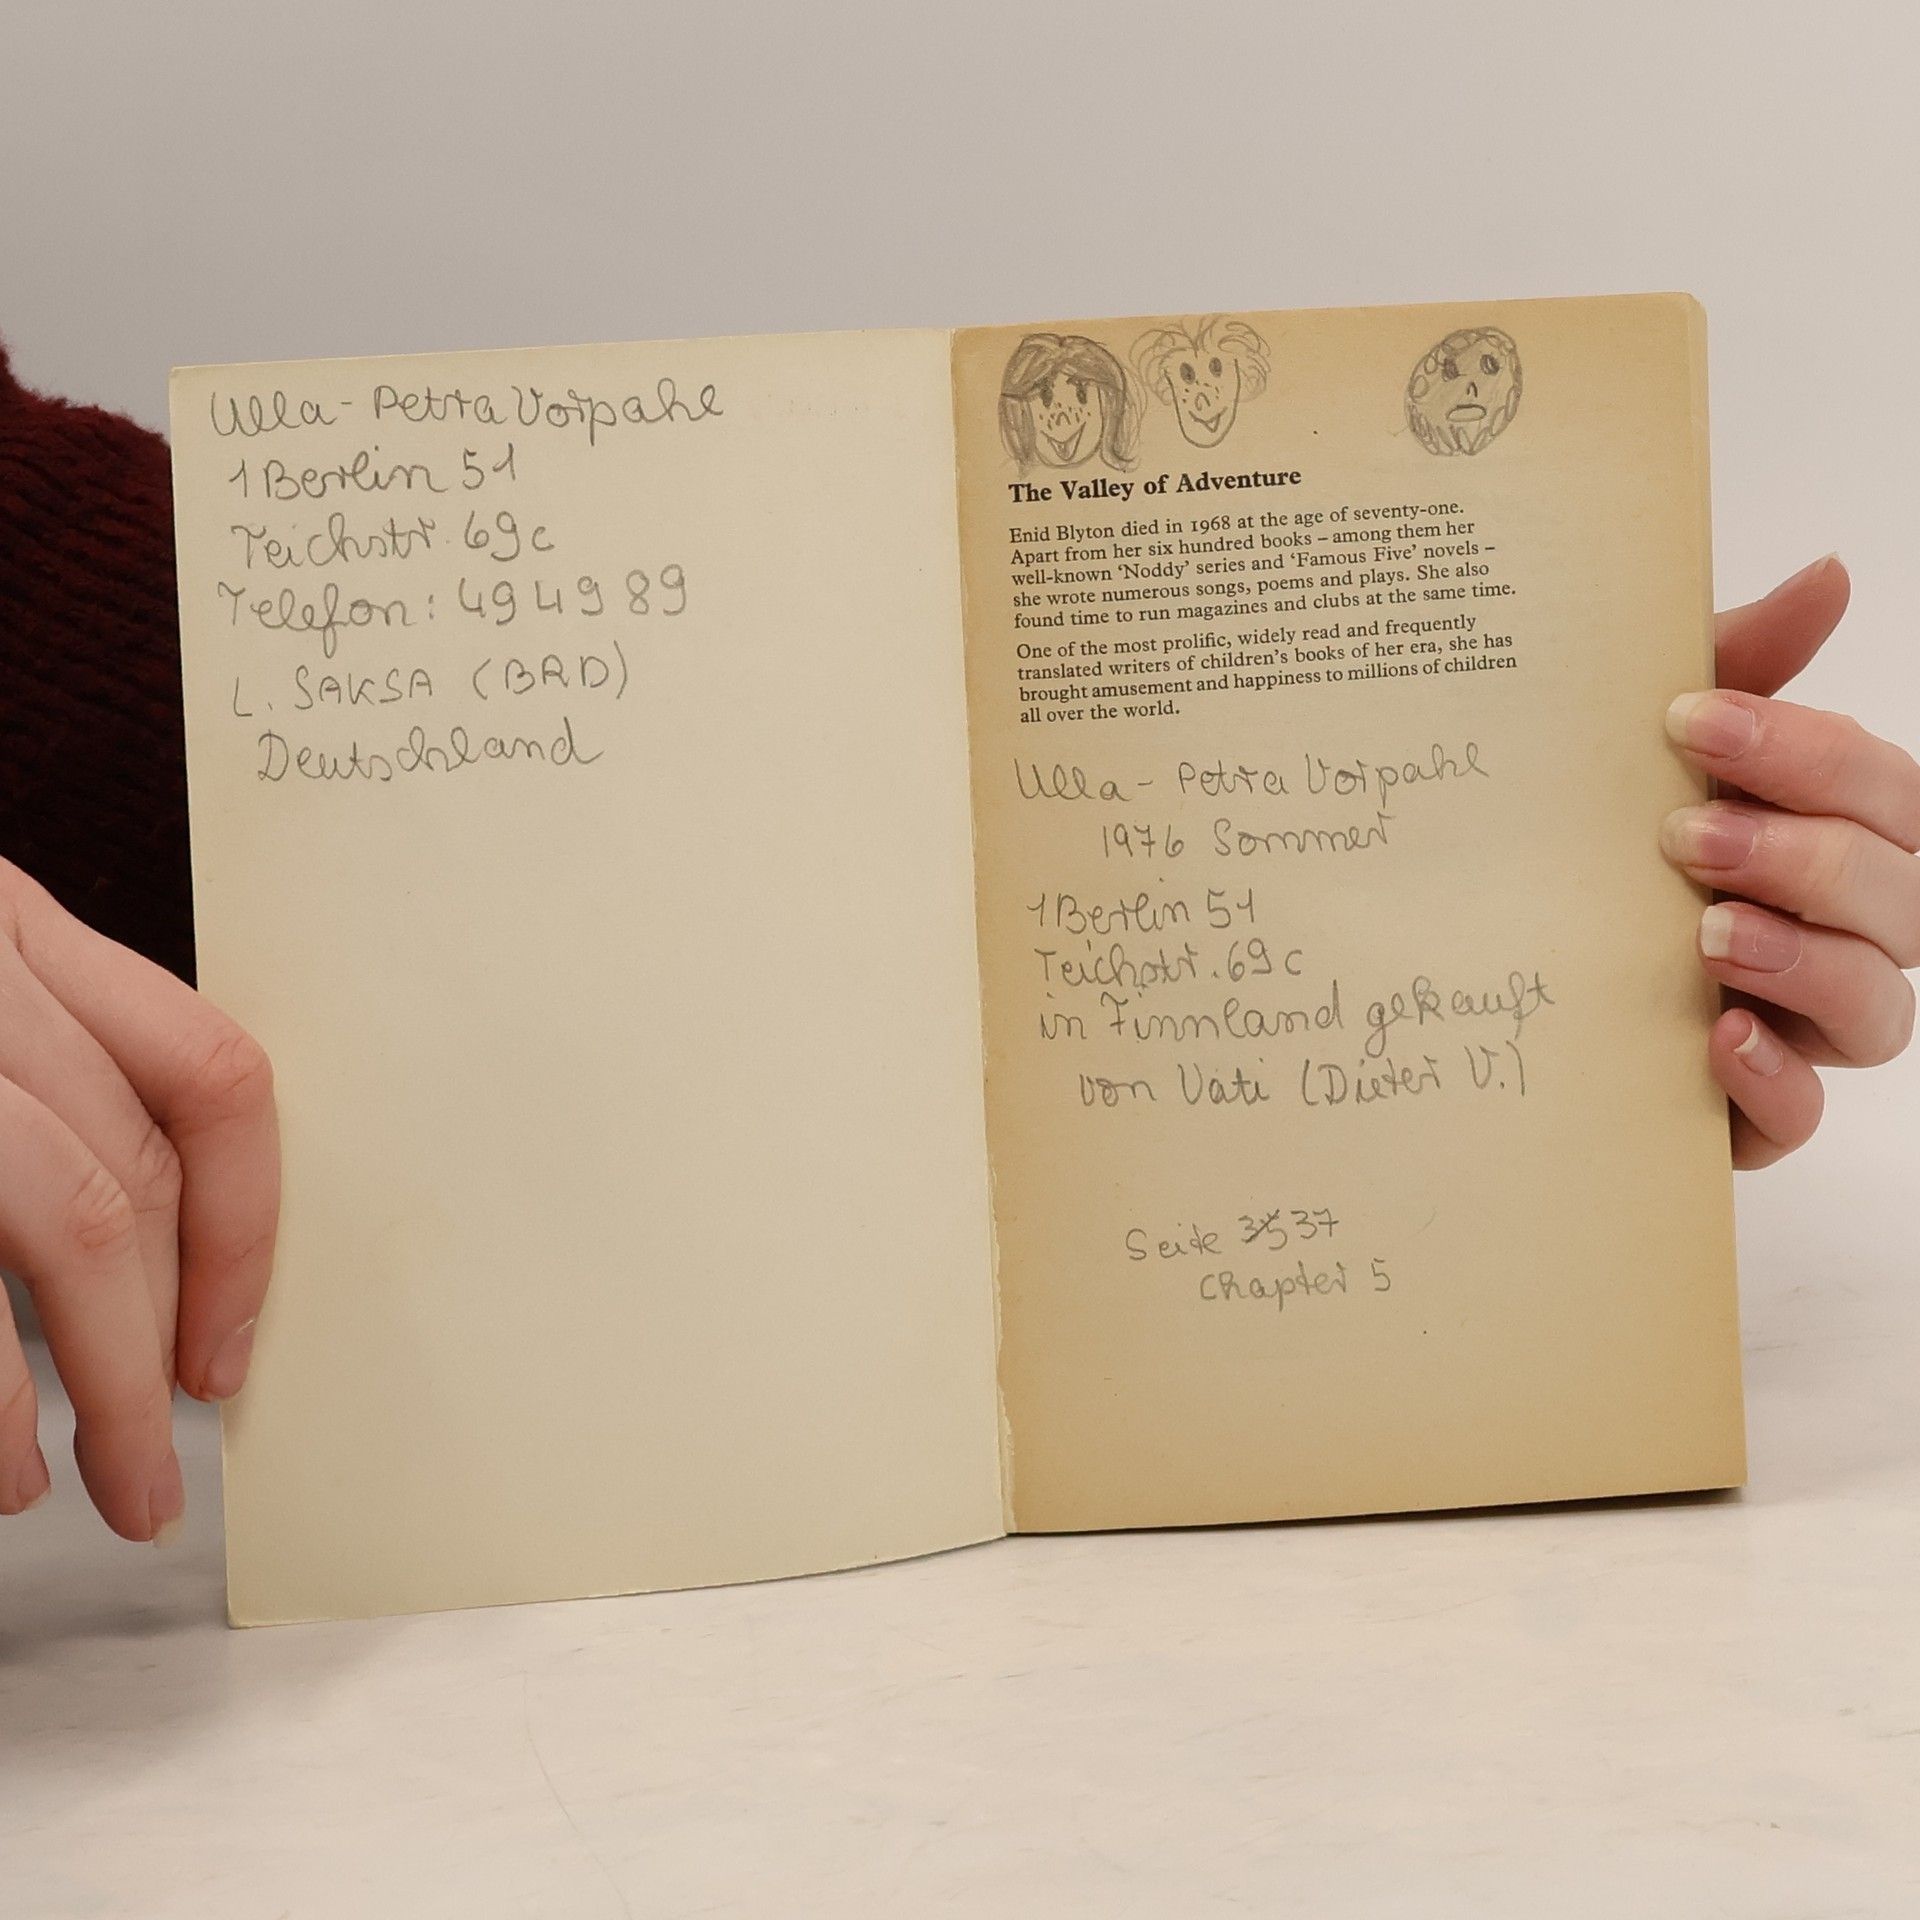 Ulla-Petra Vorpahl
1 Berlin 51
Teichstr. 69c
Telefon: 49 49 89
L. SAKSA (BRD)
Deutschland
The Valley of Adventure
Enid Blyton died in 1968 at the age of seventy-one.
Apart from her six hundred books – among them her
well-known ‘Noddy’ series and ‘Famous Five’ novels –
she wrote numerous songs, poems and plays. She also
found time to run magazines and clubs at the same time.
One of the most prolific, widely read and frequently
translated writers of children’s books of her era, she has
brought amusement and happiness to millions of children
all over the world.
Ulla-Petra Vorpahl
1976 Sommer
1 Berlin 51
Teichstr. 69c
in Finnland gekauft
von Vati (Dieter V.)
Seite 35 37
Chapter 5